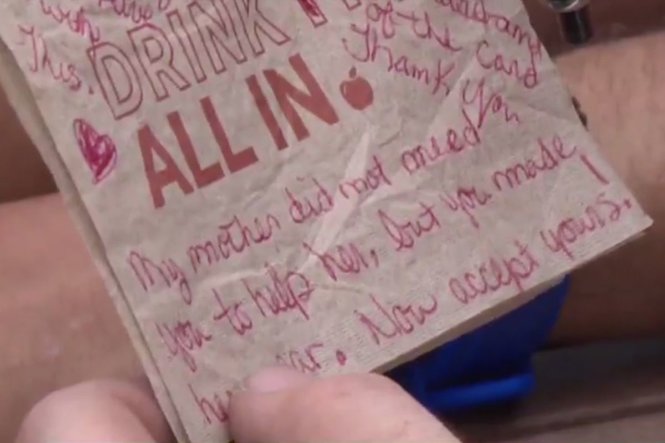 with
This.
DRINK
of the card
Thank you
ALL IN
My mother did not need
you to help her, but you made
Now accept yours.